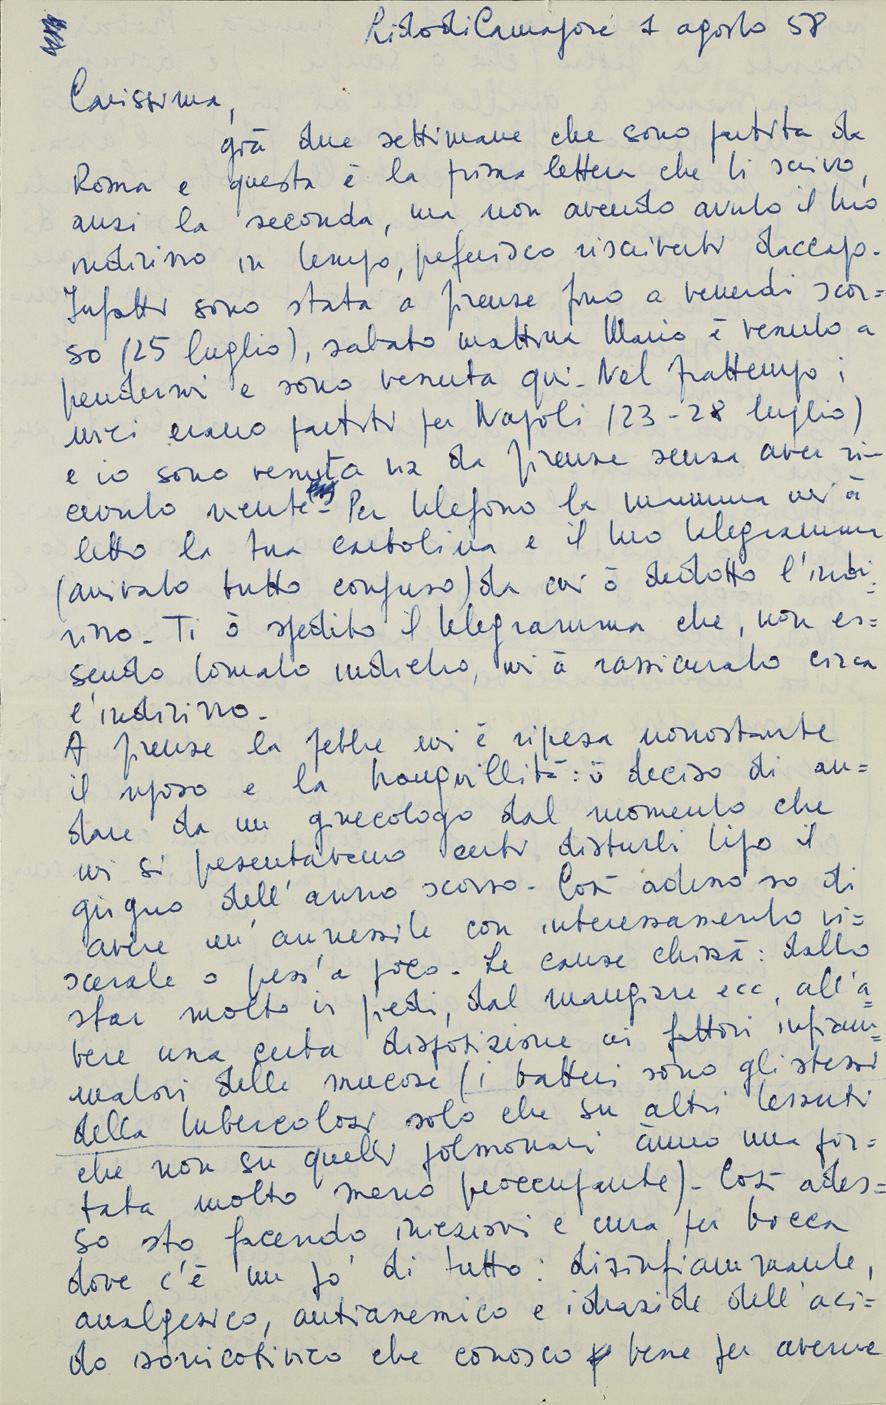 Lido di Camajore 1 agosto 58
Carissima,
già due settimane che sono partita da
Roma e questa è la prima lettera che ti scrivo,
anzi la seconda, ma non avendo avuto il tuo
indirizzo in tempo, preferisco riscriverti daccapo.
Infatti sono stata a firenze fino a venerdì scor=
so (25 luglio), sabato mattina Mario è venuto a
prendermi e sono venuta qui. Nel frattempo i
miei erano partiti per Napoli (23-28 luglio)
e io sono venuta via da firenze senza aver ri-
cevuto niente. Per telefono la mamma mi à
letto la tua cartolina e il tuo telegramma
(arrivato tutto confuso) da cui ò dedotto l'indi=
rizzo. Ti ò spedito il telegramma che, non es=
sendo tornato indietro, mi à rassicurato circa
l'indirizzo.
A firenze la febbre mi è ripresa nonostante
il riposo e la tranquillità: ò deciso di an=
dare da un ginecologo dal momento che
mi si presentavano certi disturbi tipo il
giugno dell'anno scorso. Così adesso so di
avere un'annessite con interessamento vi=
scerale o press'a poco. Le cause chissà: dallo
star molto in piedi, dal mangiare ecc, all'a=
vere una certa disposizione ai fattori infiam=
matori delle mucose (i batteri sono gli stessi
della tubercolosi solo che su altri tessuti
che non su quelli polmonari ànno una por=
tata molto meno preoccupante). Così ades=
so sto facendo iniezioni e cura per bocca
dove c'è un po' di tutto: disinfiammante,
analgesico, antianemico e idrazide dell'aci=
do isonicotinico che conosco bene per averne